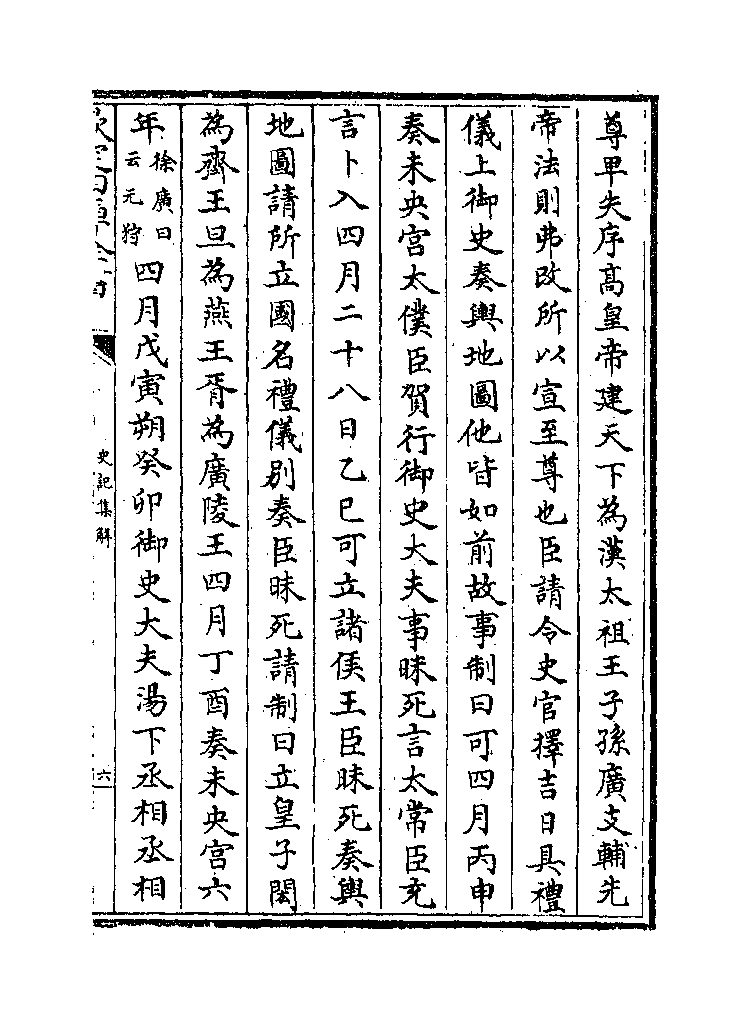 尊卑失序髙皇帝建天下為漢太祖王子孫廣支輔先
帝法則弗改所以宣至尊也臣請令史官擇吉日具禮
儀上御史奏輿地圖他皆如前故事制曰可四月丙申
奏未央宫太僕臣賀行御史大夫事昧死言太常臣充
言卜入四月二十八日乙巳可立諸侯王臣昧死奏輿
地圖請所立國名禮儀别奏臣昧死請制曰立皇子閎
為齊王旦為燕王胥為廣陵王四月丁酉奏未央宫六
年徐廣曰云元狩四月戊寅朔癸卯御史大夫湯下丞相丞相
史記集解
六